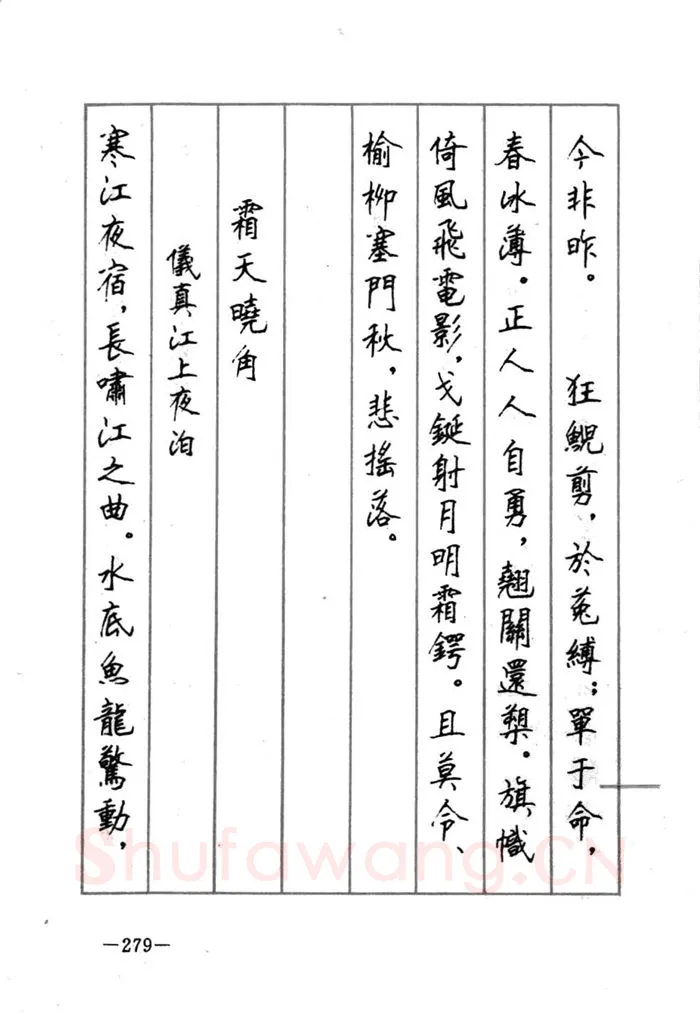 今非昨。 狂鯢剪，於菟縛；單于命，
春冰薄。正人人自勇，翹關還槊。旗幟
倚風飛電影，戈鋋射月明霜鍔。且莫令、
榆柳塞門秋，悲搖落。
霜天曉角
儀真江上夜泊
寒江夜宿，長嘯江之曲。水底魚龍驚動，
Shufawang.CN
—279—